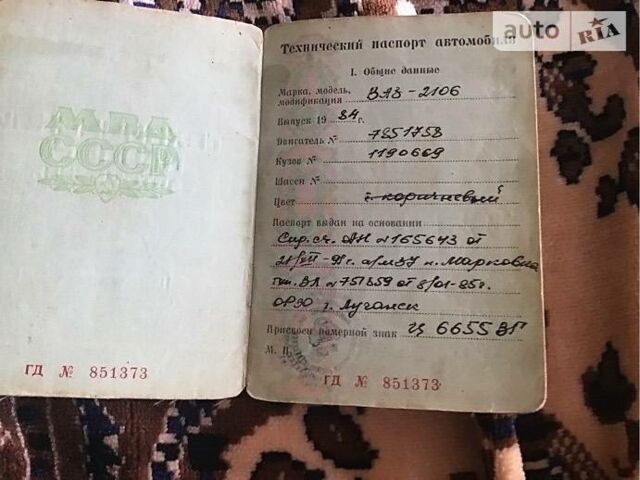 МВД
СССР
ГД № 851373
auto RIA
Технический паспорт автомобиля
I. Общие данные
Марка, модель,
модификация ВАЗ-2106
Выпуск 19 84 г.
Двигатель № 7851758
Кузов № 1190669
Шасси №
Цвет т-коричневый
Паспорт выдан на основании
Спр. сч. АН №165643 от
г. Марковка
ВА №751859 от 8/01-85г.
ОРЭО г. Луганск
Присвоен номерной знак Ц 6655 ВГ
М. П.
ГД № 851373